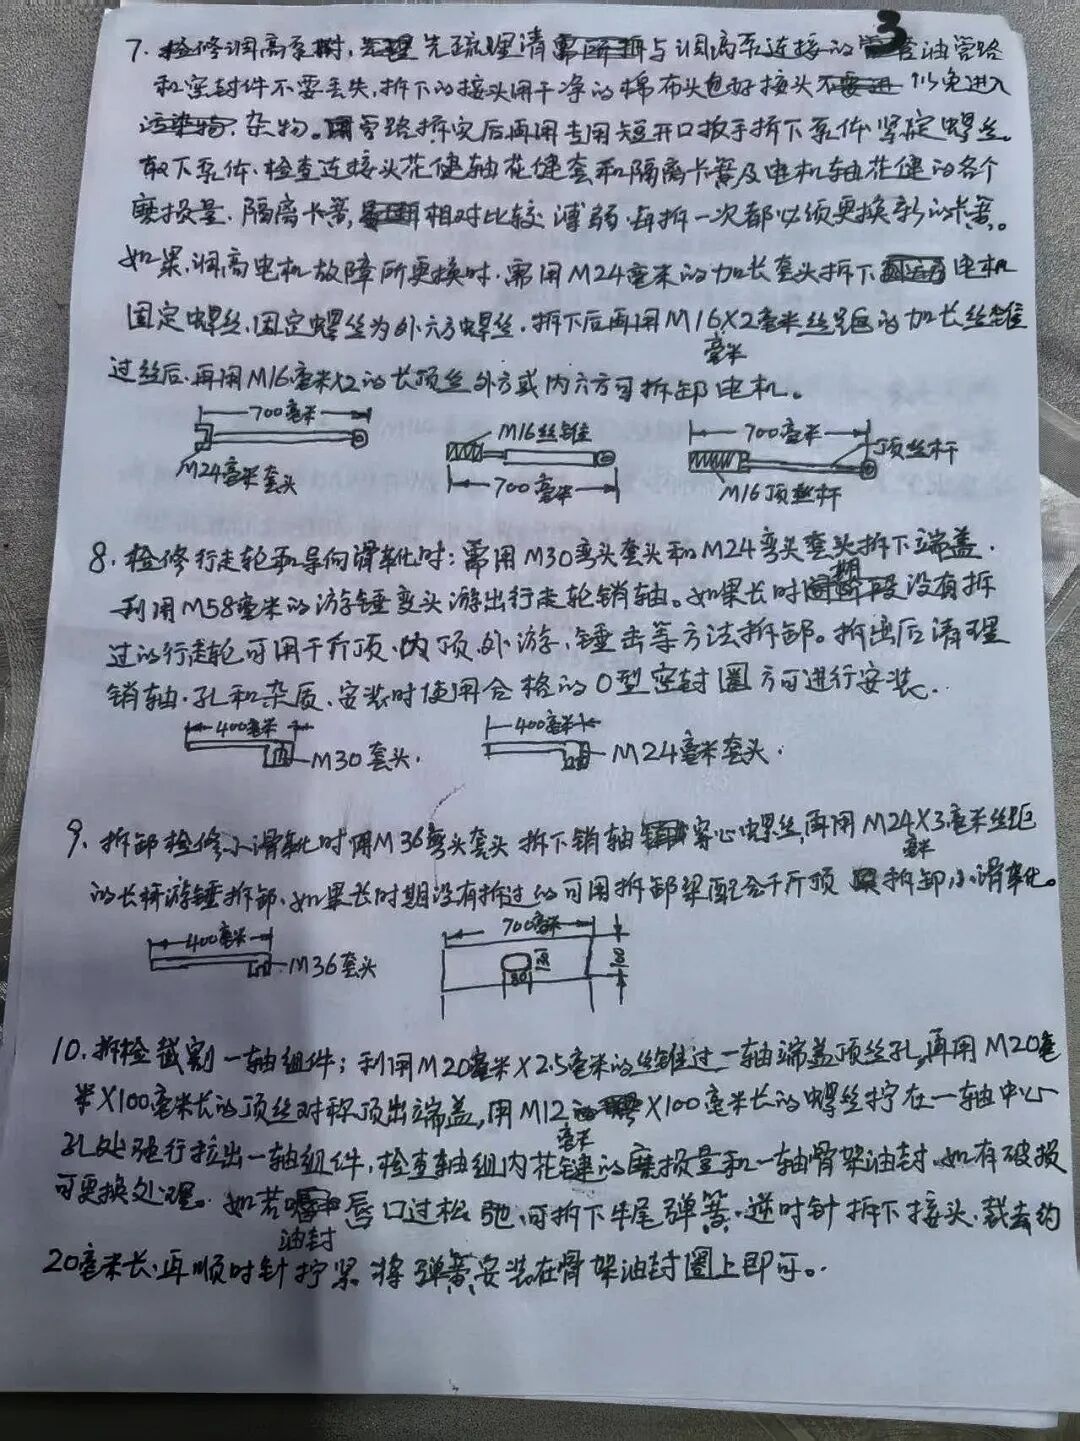 3
7. 检修调高泵时, 先疏理清与调高泵连接的各油管路
和密封件不要丢失, 拆下的接头用干净的棉布头包好接头以免进入
杂物。管路拆完后再用专用短开口扳手拆下泵体紧定螺丝。
取下泵体, 检查连接头花健轴花健套和隔离卡簧及电机轴花健的各个
磨损量. 隔离卡簧, 相对比较薄弱, 每拆一次都必须更换新的卡簧。
如果, 调高电机故障所更换时. 需用M24毫米的加长套头拆下电机
固定螺丝, 固定螺丝为外六方螺丝. 拆下后再用M16毫米X2毫米丝距的加长丝锥
过丝后, 再用M16毫米X2的长顶丝外方或内六方可拆卸电机。
700毫米
M24毫米套头
M16丝锥
700毫米
700毫米
顶丝杆
M16顶丝杆
8. 检修行走轮和导向滑靴时: 需用M30弯头套头和M24弯头套头拆下端盖.
利用M58毫米的游锤弯头游出行走轮销轴。如果长时期没有拆
过的行走轮可用千斤顶, 内顶, 外游, 锤击等方法拆卸。拆出后清理
销轴. 孔和杂质. 安装时使用合格的O型密封圈方可进行安装.
400毫米
M30套头.
400毫米
M24毫米套头.
9. 拆卸检修小滑靴时用M36弯头套头拆下销轴穿心螺丝, 再用M24毫米X3毫米丝距
的长杆游锤拆卸. 如果长时期没有拆过的可用拆卸架配合千斤顶拆卸小滑靴。
400毫米
M36套头
700毫米
80
10. 拆检截割一轴组件; 利用M20毫米X2.5毫米的丝锥过一轴端盖顶丝孔, 再用M20毫
米X100毫米长的顶丝对称顶出端盖, 用M12毫米X100毫米长的螺丝拧在一轴中心
孔处强行拉出一轴组件, 检查轴组内花键的磨损量和一轴骨架油封. 如有破损
可更换处理。如若油封唇口过松弛, 可拆下牛尾弹簧. 逆时针拆下接头. 裁去约
20毫米长, 再顺时针拧紧将弹簧安装在骨架油封圈上即可。